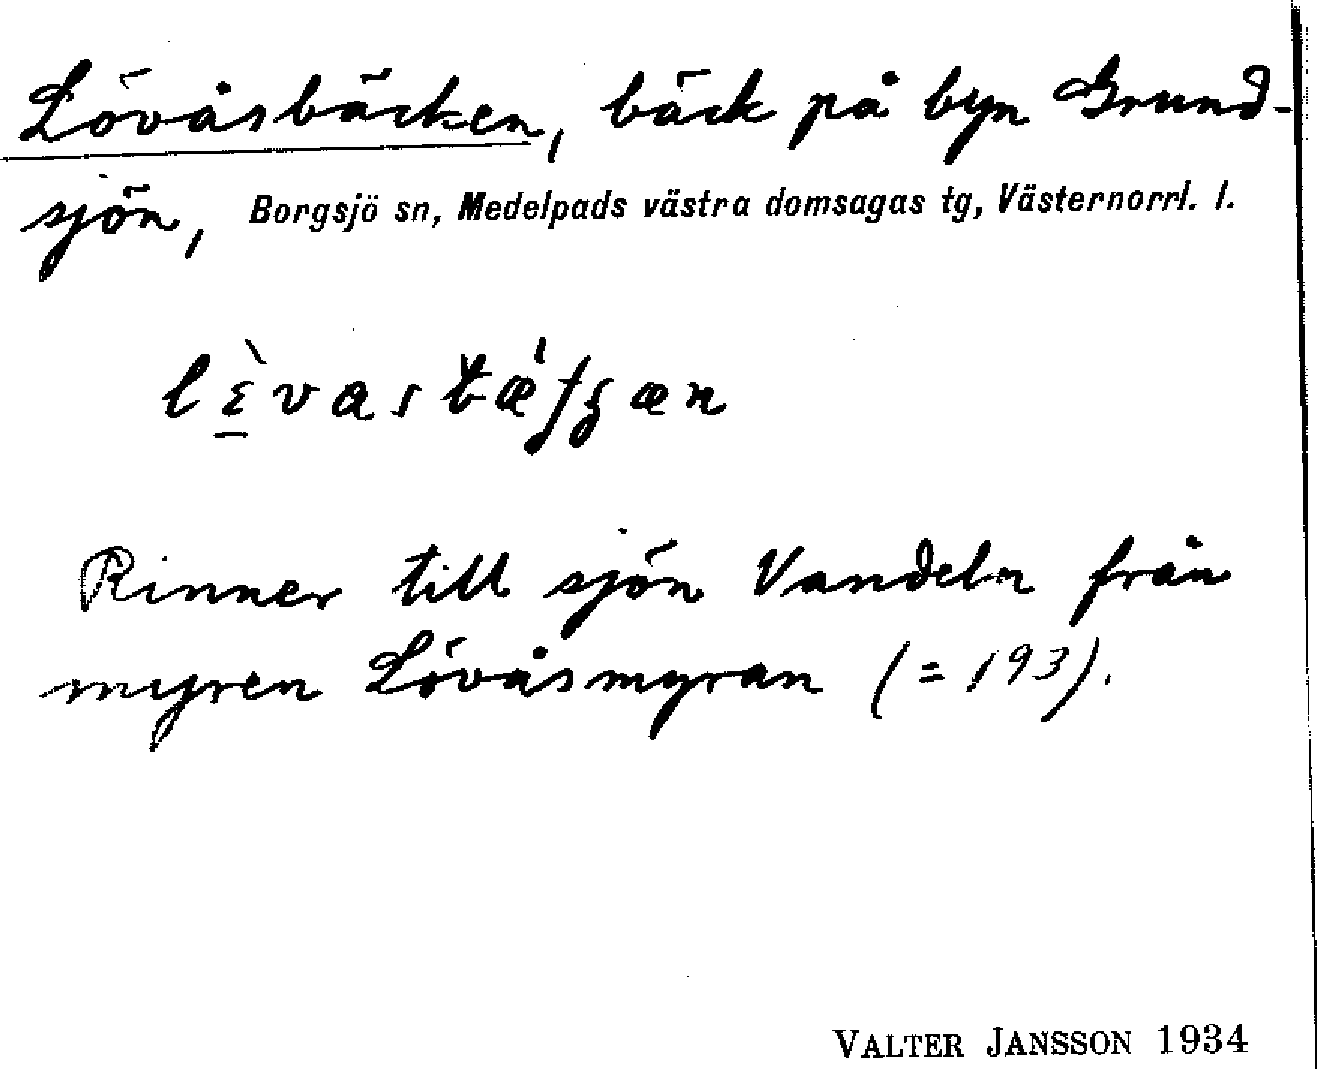 Lövåsbäcken, bäck på byn Grund-
sjön, Borgsjö sn, Medelpads västra domsagas tg, Västernorrl. l.
Rinner till sjön Vandeln från
myren Lövåsmyran (= 193).
VALTER JANSSON 1934